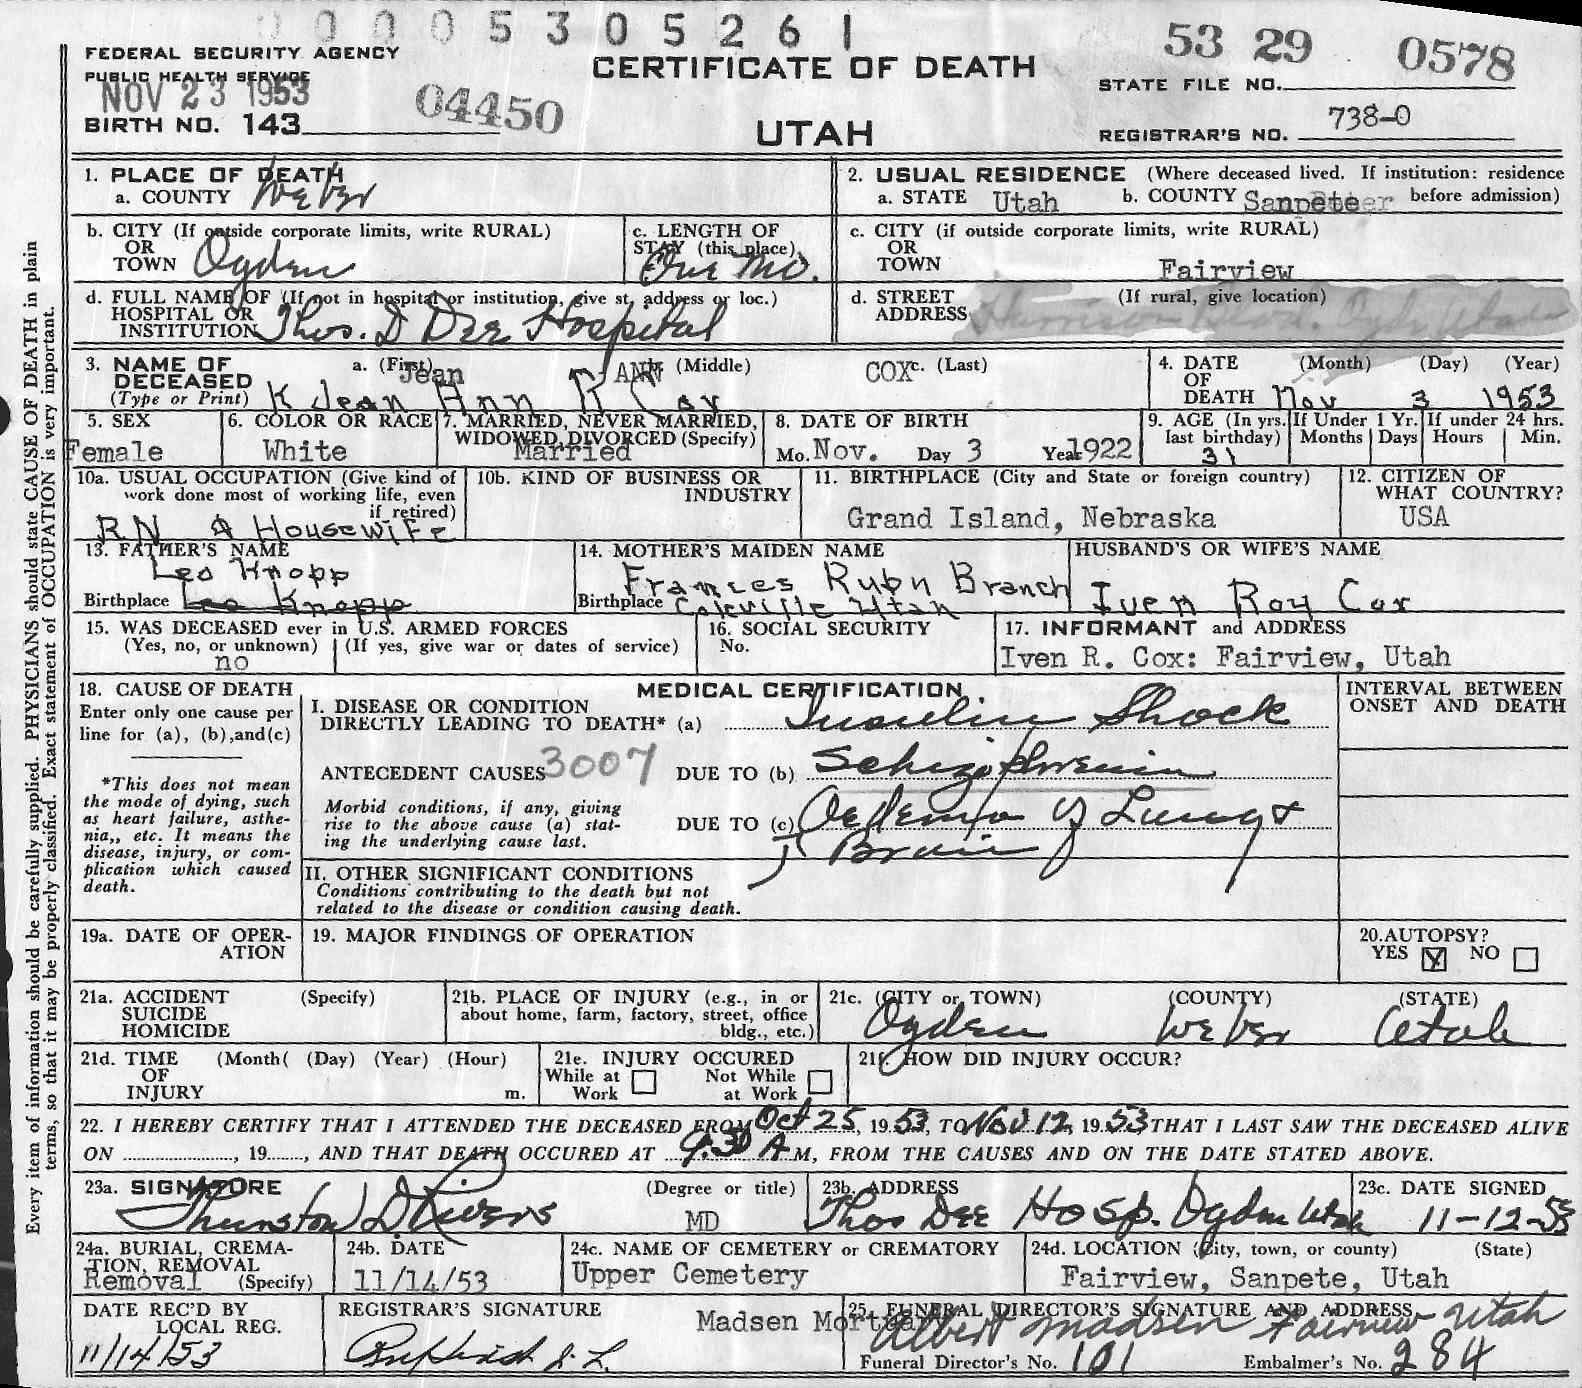 00005305261
FEDERAL SECURITY AGENCY
PUBLIC HEALTH SERVICE
NOV 23 1953
BIRTH NO. 143
04450
CERTIFICATE OF DEATH
UTAH
53 29 0578
STATE FILE NO.
REGISTRAR'S NO. 738-0
Every item of information should be carefully supplied. PHYSICIANS should state CAUSE OF DEATH in plain
terms, so that it may be properly classified. Exact statement of OCCUPATION is very important.
1. PLACE OF DEATH
a. COUNTY Weber
2. USUAL RESIDENCE (Where deceased lived. If institution: residence
a. STATE Utah b. COUNTY Sanpete before admission)
b. CITY (If outside corporate limits, write RURAL)
OR
TOWN Ogden
c. LENGTH OF
STAY (this place)
One Mo.
c. CITY (if outside corporate limits, write RURAL)
OR
TOWN Fairview
d. FULL NAME OF (If not in hospital or institution, give st. address or loc.)
HOSPITAL OR
INSTITUTION Thos. D Dee Hospital
d. STREET (If rural, give location)
ADDRESS
3. NAME OF a. (First) (Middle) c. (Last)
DECEASED Jean ANN COX
(Type or Print) K Jean Ann R Cox
4. DATE (Month) (Day) (Year)
OF
DEATH Nov 3 1953
5. SEX
Female
6. COLOR OR RACE
White
7. MARRIED, NEVER MARRIED,
WIDOWED, DIVORCED (Specify)
Married
8. DATE OF BIRTH
Mo. Nov. Day 3 Year 1922
9. AGE (In yrs. If Under 1 Yr. If under 24 hrs.
last birthday) Months Days Hours Min.
31
10a. USUAL OCCUPATION (Give kind of
work done most of working life, even
if retired)
RN & HOUSEWIFE
10b. KIND OF BUSINESS OR
INDUSTRY
11. BIRTHPLACE (City and State or foreign country)
Grand Island, Nebraska
12. CITIZEN OF
WHAT COUNTRY?
USA
13. FATHER'S NAME
Leo Knopp
Birthplace Leo Knopp
14. MOTHER'S MAIDEN NAME
Frances Rubn Branch
Birthplace Coleville Utah
HUSBAND'S OR WIFE'S NAME
Iven Roy Cox
15. WAS DECEASED ever in U.S. ARMED FORCES
(Yes, no, or unknown) (If yes, give war or dates of service)
no
16. SOCIAL SECURITY
No.
17. INFORMANT and ADDRESS
Iven R. Cox: Fairview, Utah
18. CAUSE OF DEATH
Enter only one cause per
line for (a), (b),and(c)
*This does not mean
the mode of dying, such
as heart failure, asthe-
nia,, etc. It means the
disease, injury, or com-
plication which caused
death.
MEDICAL CERTIFICATION
I. DISEASE OR CONDITION
DIRECTLY LEADING TO DEATH* (a) Insulin Shock
ANTECEDENT CAUSES 3007 DUE TO (b) Schizophrenia
Morbid conditions, if any, giving
rise to the above cause (a) stat-
ing the underlying cause last.
DUE TO (c) Oedema of Lungs &
Brain
II. OTHER SIGNIFICANT CONDITIONS
Conditions contributing to the death but not
related to the disease or condition causing death.
INTERVAL BETWEEN
ONSET AND DEATH
19a. DATE OF OPER-
ATION
19. MAJOR FINDINGS OF OPERATION
20.AUTOPSY?
YES X NO
21a. ACCIDENT (Specify)
SUICIDE
HOMICIDE
21b. PLACE OF INJURY (e.g., in or
about home, farm, factory, street, office
bldg., etc.)
21c. (CITY or TOWN) (COUNTY) (STATE)
Ogden Weber Utah
21d. TIME (Month( (Day) (Year) (Hour)
OF
INJURY m.
21e. INJURY OCCURED
While at Not While
Work at Work
21f. HOW DID INJURY OCCUR?
22. I HEREBY CERTIFY THAT I ATTENDED THE DECEASED FROM Oct 25, 1953, TO Nov 12, 1953, THAT I LAST SAW THE DECEASED ALIVE
ON , 19 , AND THAT DEATH OCCURED AT 9:30 A M, FROM THE CAUSES AND ON THE DATE STATED ABOVE.
23a. SIGNATURE (Degree or title)
Thurston D Rivers MD
23b. ADDRESS
Thos Dee Hosp. Ogden Utah
23c. DATE SIGNED
11-12-53
24a. BURIAL, CREMA-
TION, REMOVAL
Removal (Specify)
24b. DATE
11/14/53
24c. NAME OF CEMETERY or CREMATORY
Upper Cemetery
24d. LOCATION (City, town, or county) (State)
Fairview, Sanpete, Utah
DATE REC'D BY
LOCAL REG.
11/14/53
REGISTRAR'S SIGNATURE
25. FUNERAL DIRECTOR'S SIGNATURE AND ADDRESS
Madsen Mortuary Albert Madsen Fairview Utah
Funeral Director's No. 101 Embalmer's No. 284